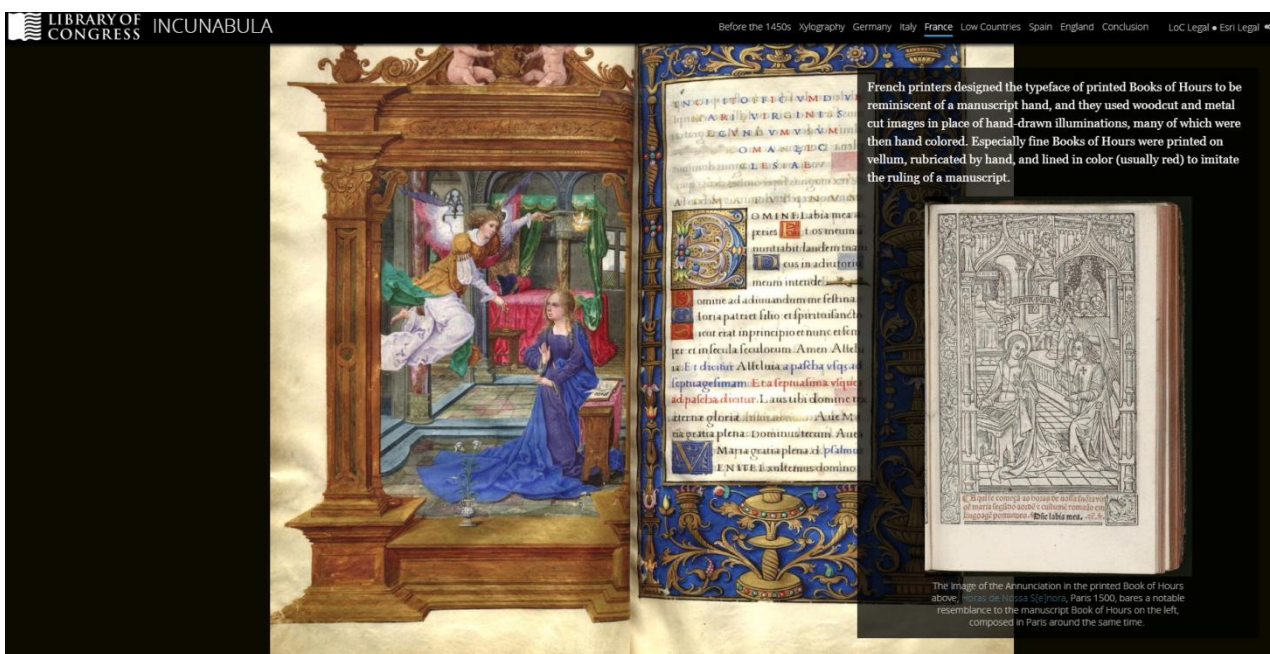 LIBRARY OF
CONGRESS
INCUNABULA
Before the 1450s Xylography Germany Italy France Low Countries Spain England Conclusion LoC Legal • Esri Legal
French printers designed the typeface of printed Books of Hours to be
reminiscent of a manuscript hand, and they used woodcut and metal
cut images in place of hand-drawn illuminations, many of which were
then hand colored. Especially fine Books of Hours were printed on
vellum, rubricated by hand, and lined in color (usually red) to imitate
the ruling of a manuscript.
OMINE Labia mea
peries
nuntiabit laudem
eus in adiutoriu
meum intende
omine ad adiuuandum me festina
loria patri et filio et spiritui sancto
icut erat in principio et nunc et sem
per et in secula seculorum Amen Allelu
ia Et dicitur Alleluia a pascha vsqz ad
septuagesimam Et a septuasima vsque
ad pascha dicitur Laus tibi domine
æterne gloriæ Aue Ma
ria gratia plena Dominus tecum Aue
Maria gratia plena psalmus
VENITE Exultemus domino
Dñe labia mea.
The Image of the Annunciation in the printed Book of Hours
above, Horas de Nossa S[e]nora, Paris 1500, bares a notable
resemblance to the manuscript Book of Hours on the left,
composed in Paris around the same time.